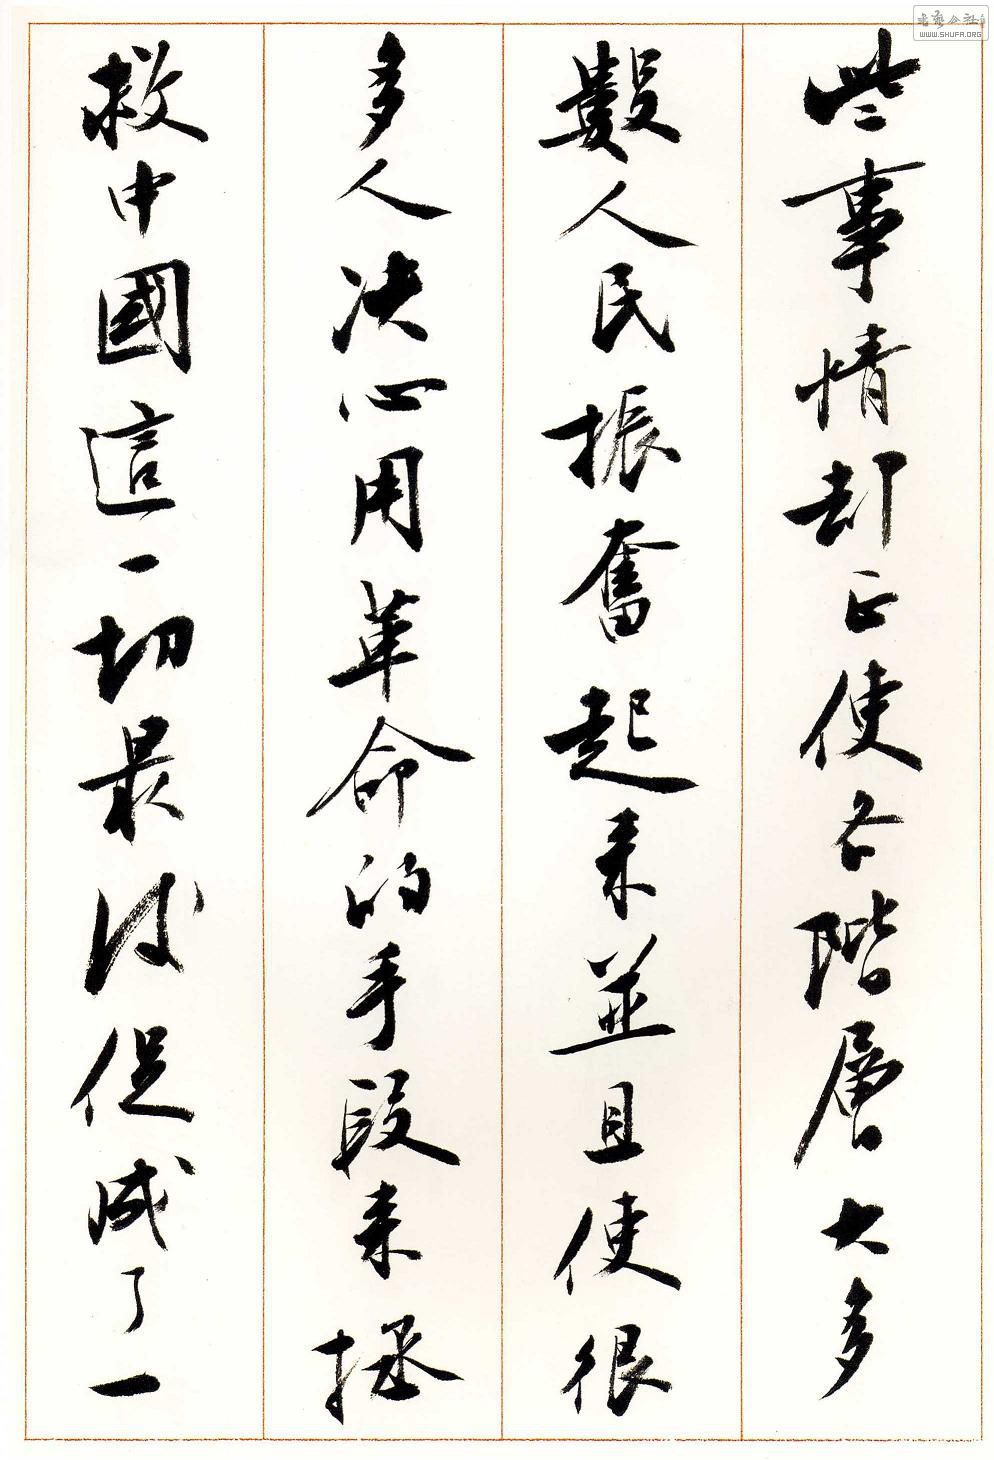 些事情却正使各階層大多
數人民振奮起來並且使很
多人决心用革命的手段来拯
救中國這一切最後促成了一
書藝公社
WWW.SHUFA.ORG